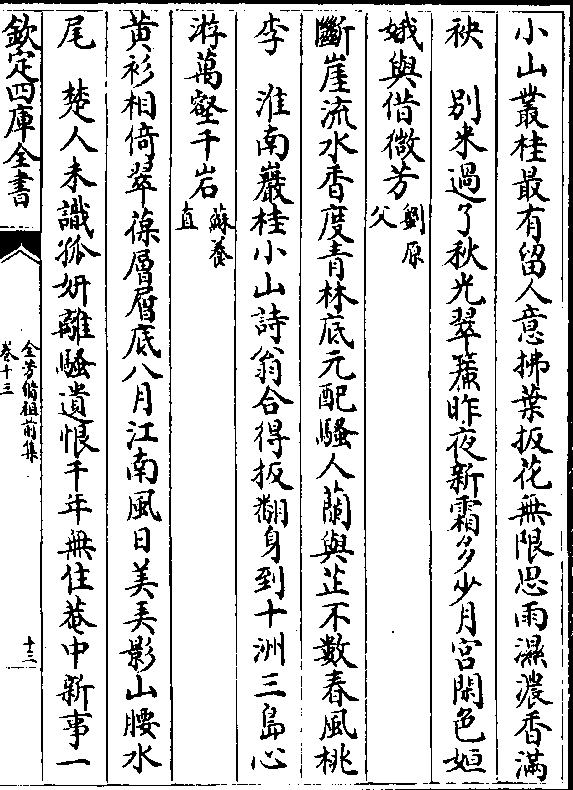 小山叢桂最有留人意拂葉扳花無限思雨濕濃香滿
袂　別来過了秋光翠簾昨夜新霜多少月宫閑色姮
娥與借微芳劉原父
斷崖流水香度青林底元配騷人蘭與芷不數春風桃
李　淮南巖桂小山詩翁合得扳翻身到十洲三島心
游萬壑千岩蘇養直
黄衫相倚翠葆層層底八月江南風日美弄影山腰水
尾　楚人未識孤妍離騷遺恨千年無住菴中新事一
欽定四庫全書
全芳備祖前集
卷十三
十三